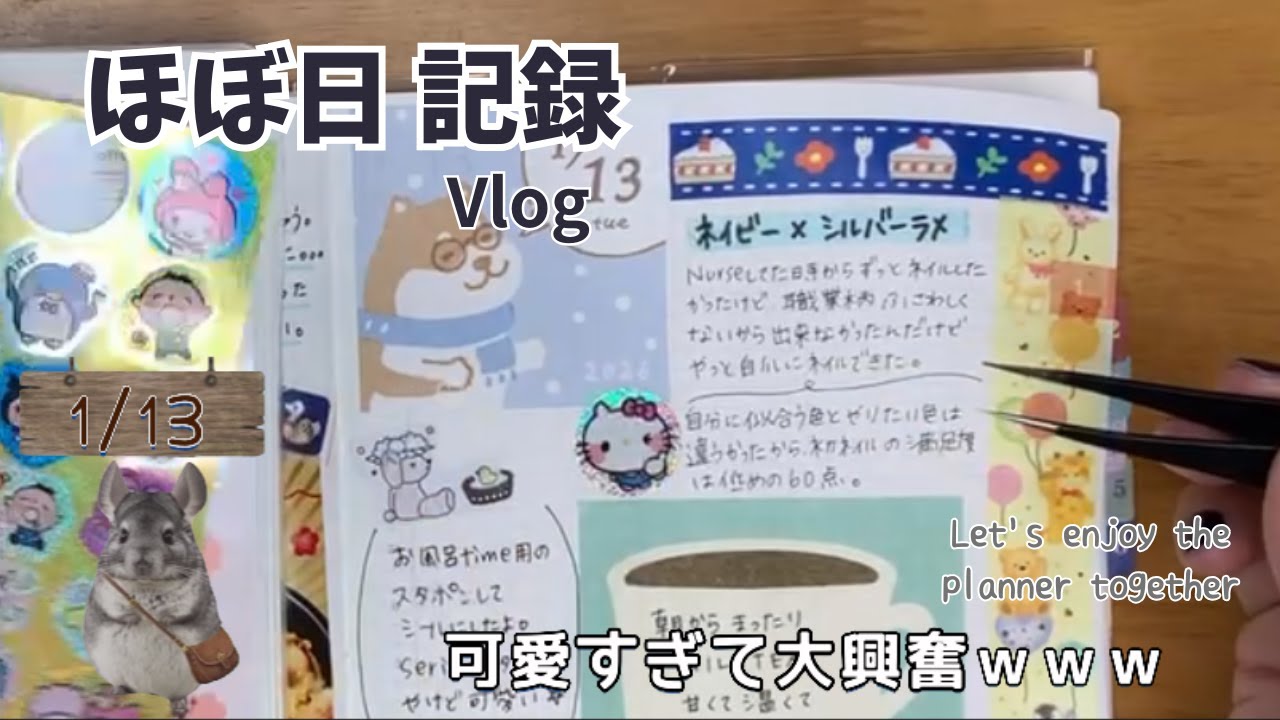 ほぼ日 記録
Vlog
1/13
tue
2026
ネイビー × シルバーラメ
Nurseしてた日寺からずっとネイルした
かったけど、職業柄ふさわしく
ないから出来なかったんだけど
やっと自ハにネイルできた。
自分に似合う色とやりたい色は
違うかったから、ネカネイルの満足度
は低めの60点。
お風呂time用の
スタポンして
シールにしたよ。
Seri
やけど可愛い
朝から まったり
甘くて温くて
1/13
5
Let's enjoy the
planner together
可愛すぎて大興奮ｗｗｗ